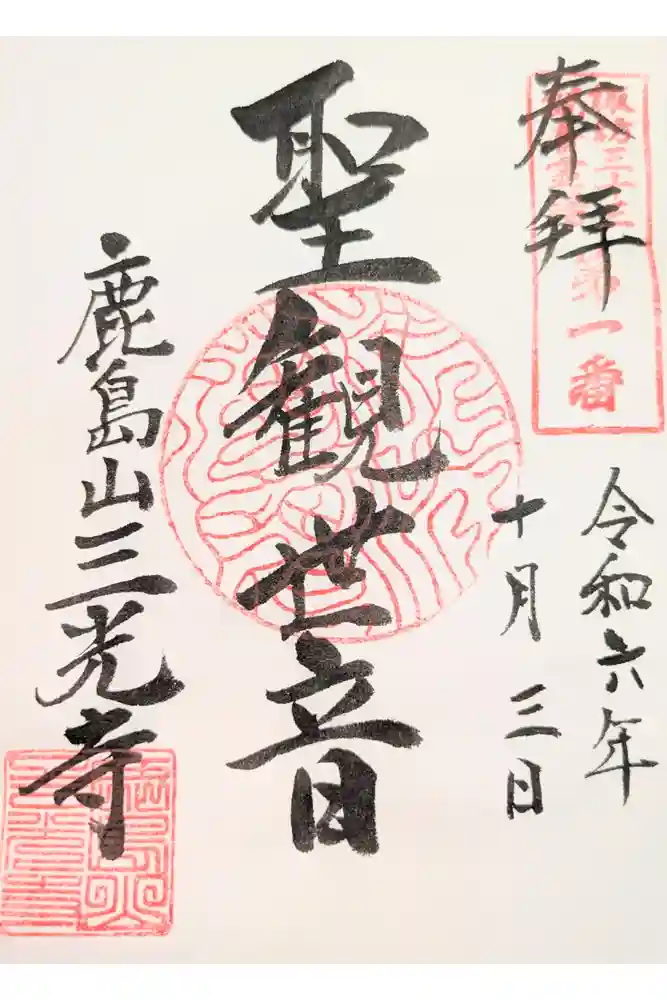 奉拝
第一番
令和六年
十月三日
聖観世音
鹿島山三光寺